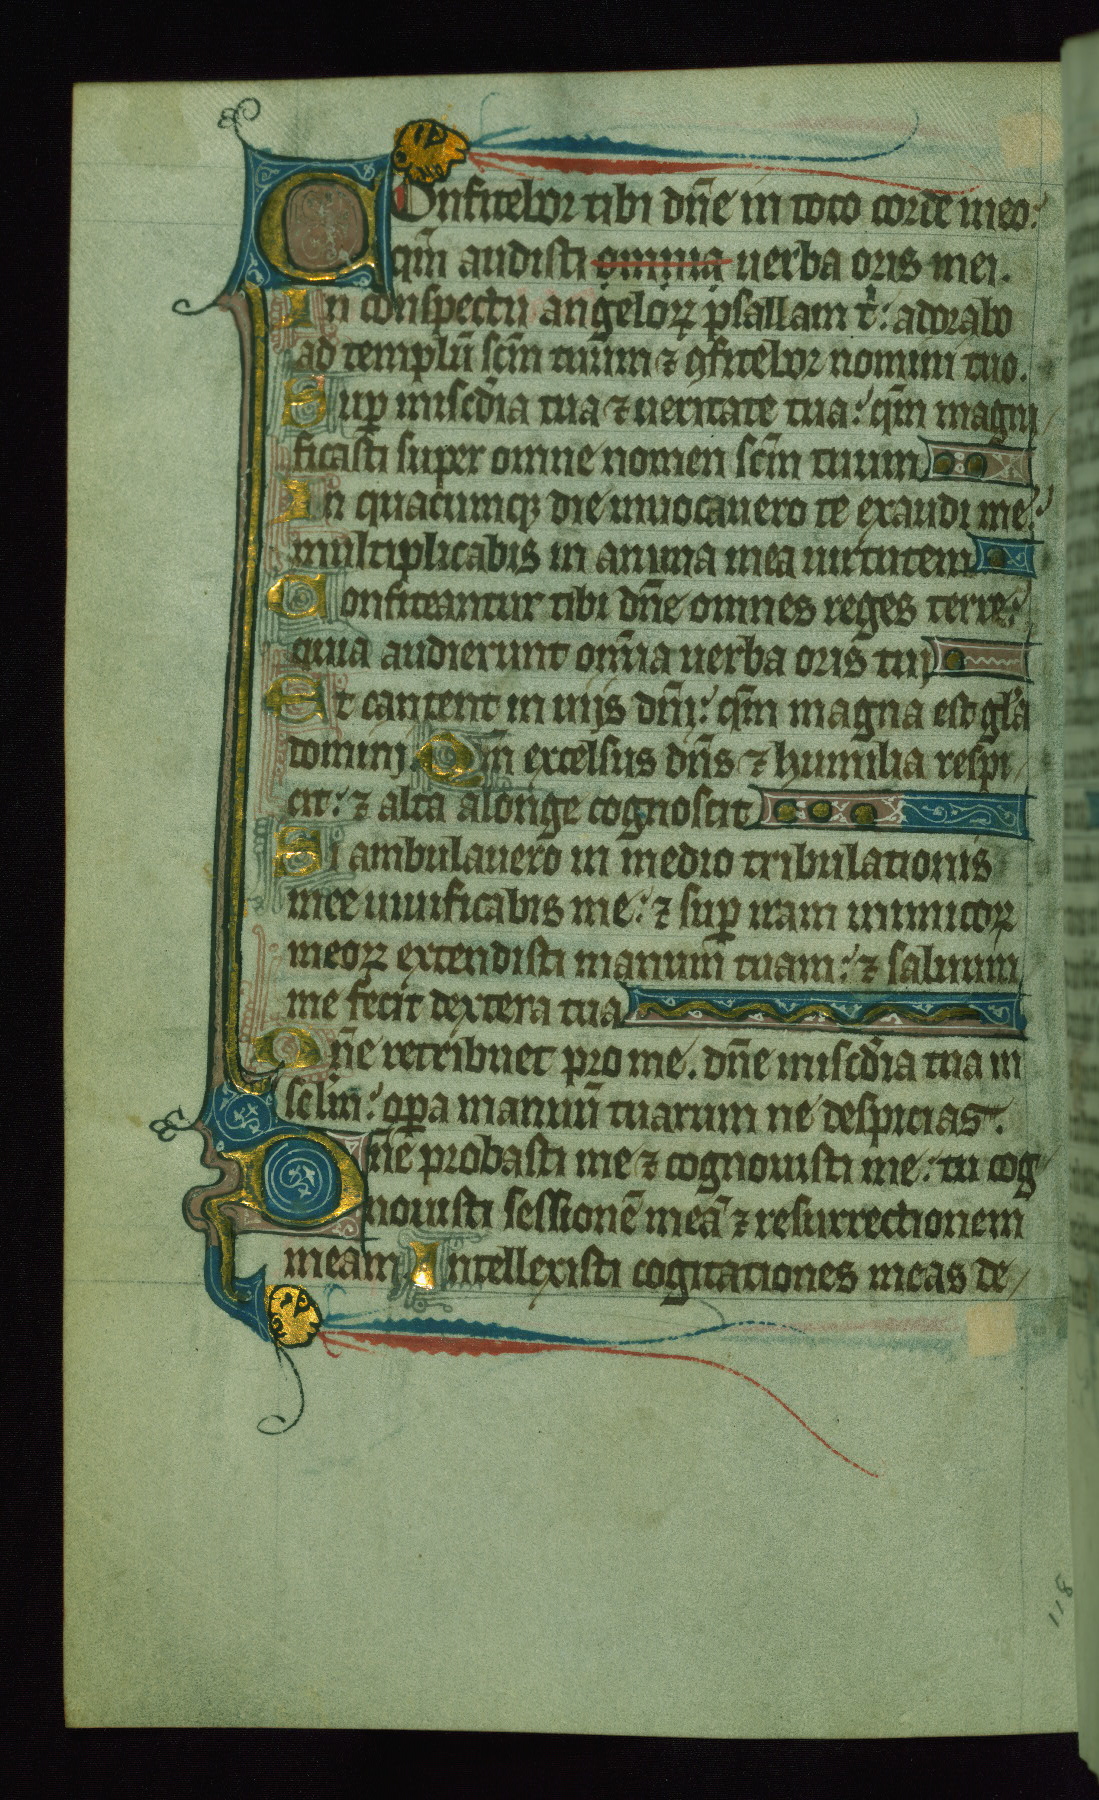 Confitebor tibi dn̄e in toto corde meo:
qm̄ audisti omnia uerba oris mei.
In conspectu angeloꝝ psallam t̾: adorabo
ad templū scm̄ tuum ⁊ ꝯfitebor nomini tuo.
Suꝑ misc̄dia tua ⁊ ueritate tua: qm̄ magni
ficasti super omne nomen scm̄ tuum
In quacumqꝫ die inuocauero te exaudi me:
multiplicabis in anima mea uirtutem
Confiteantur tibi dn̄e omnes reges terre:
quia audierunt om̄ia uerba oris tui
Et cantent in uijs dn̄i: qm̄ magna est gl̾a
domini. Qm̄ excelsus dn̄s ⁊ humilia respi
cit: ⁊ alta a longe cognoscit
Si ambulauero in medio tribulationis
mee uiuificabis me: ⁊ suꝑ iram inimicoꝝ
meoꝝ extendisti manum̄ tuam: ⁊ saluum
me fecit dextera tua
Dn̄e retribuet pro me. dn̄e misc̄dia tua in
sclm̄: oꝑa manuū tuarum ne despicias.
Dn̄e probasti me ⁊ cognouisti me: tu cog
nouisti sessionē meā ⁊ resurrectionem
meam Intellexisti cogitationes meas de
118